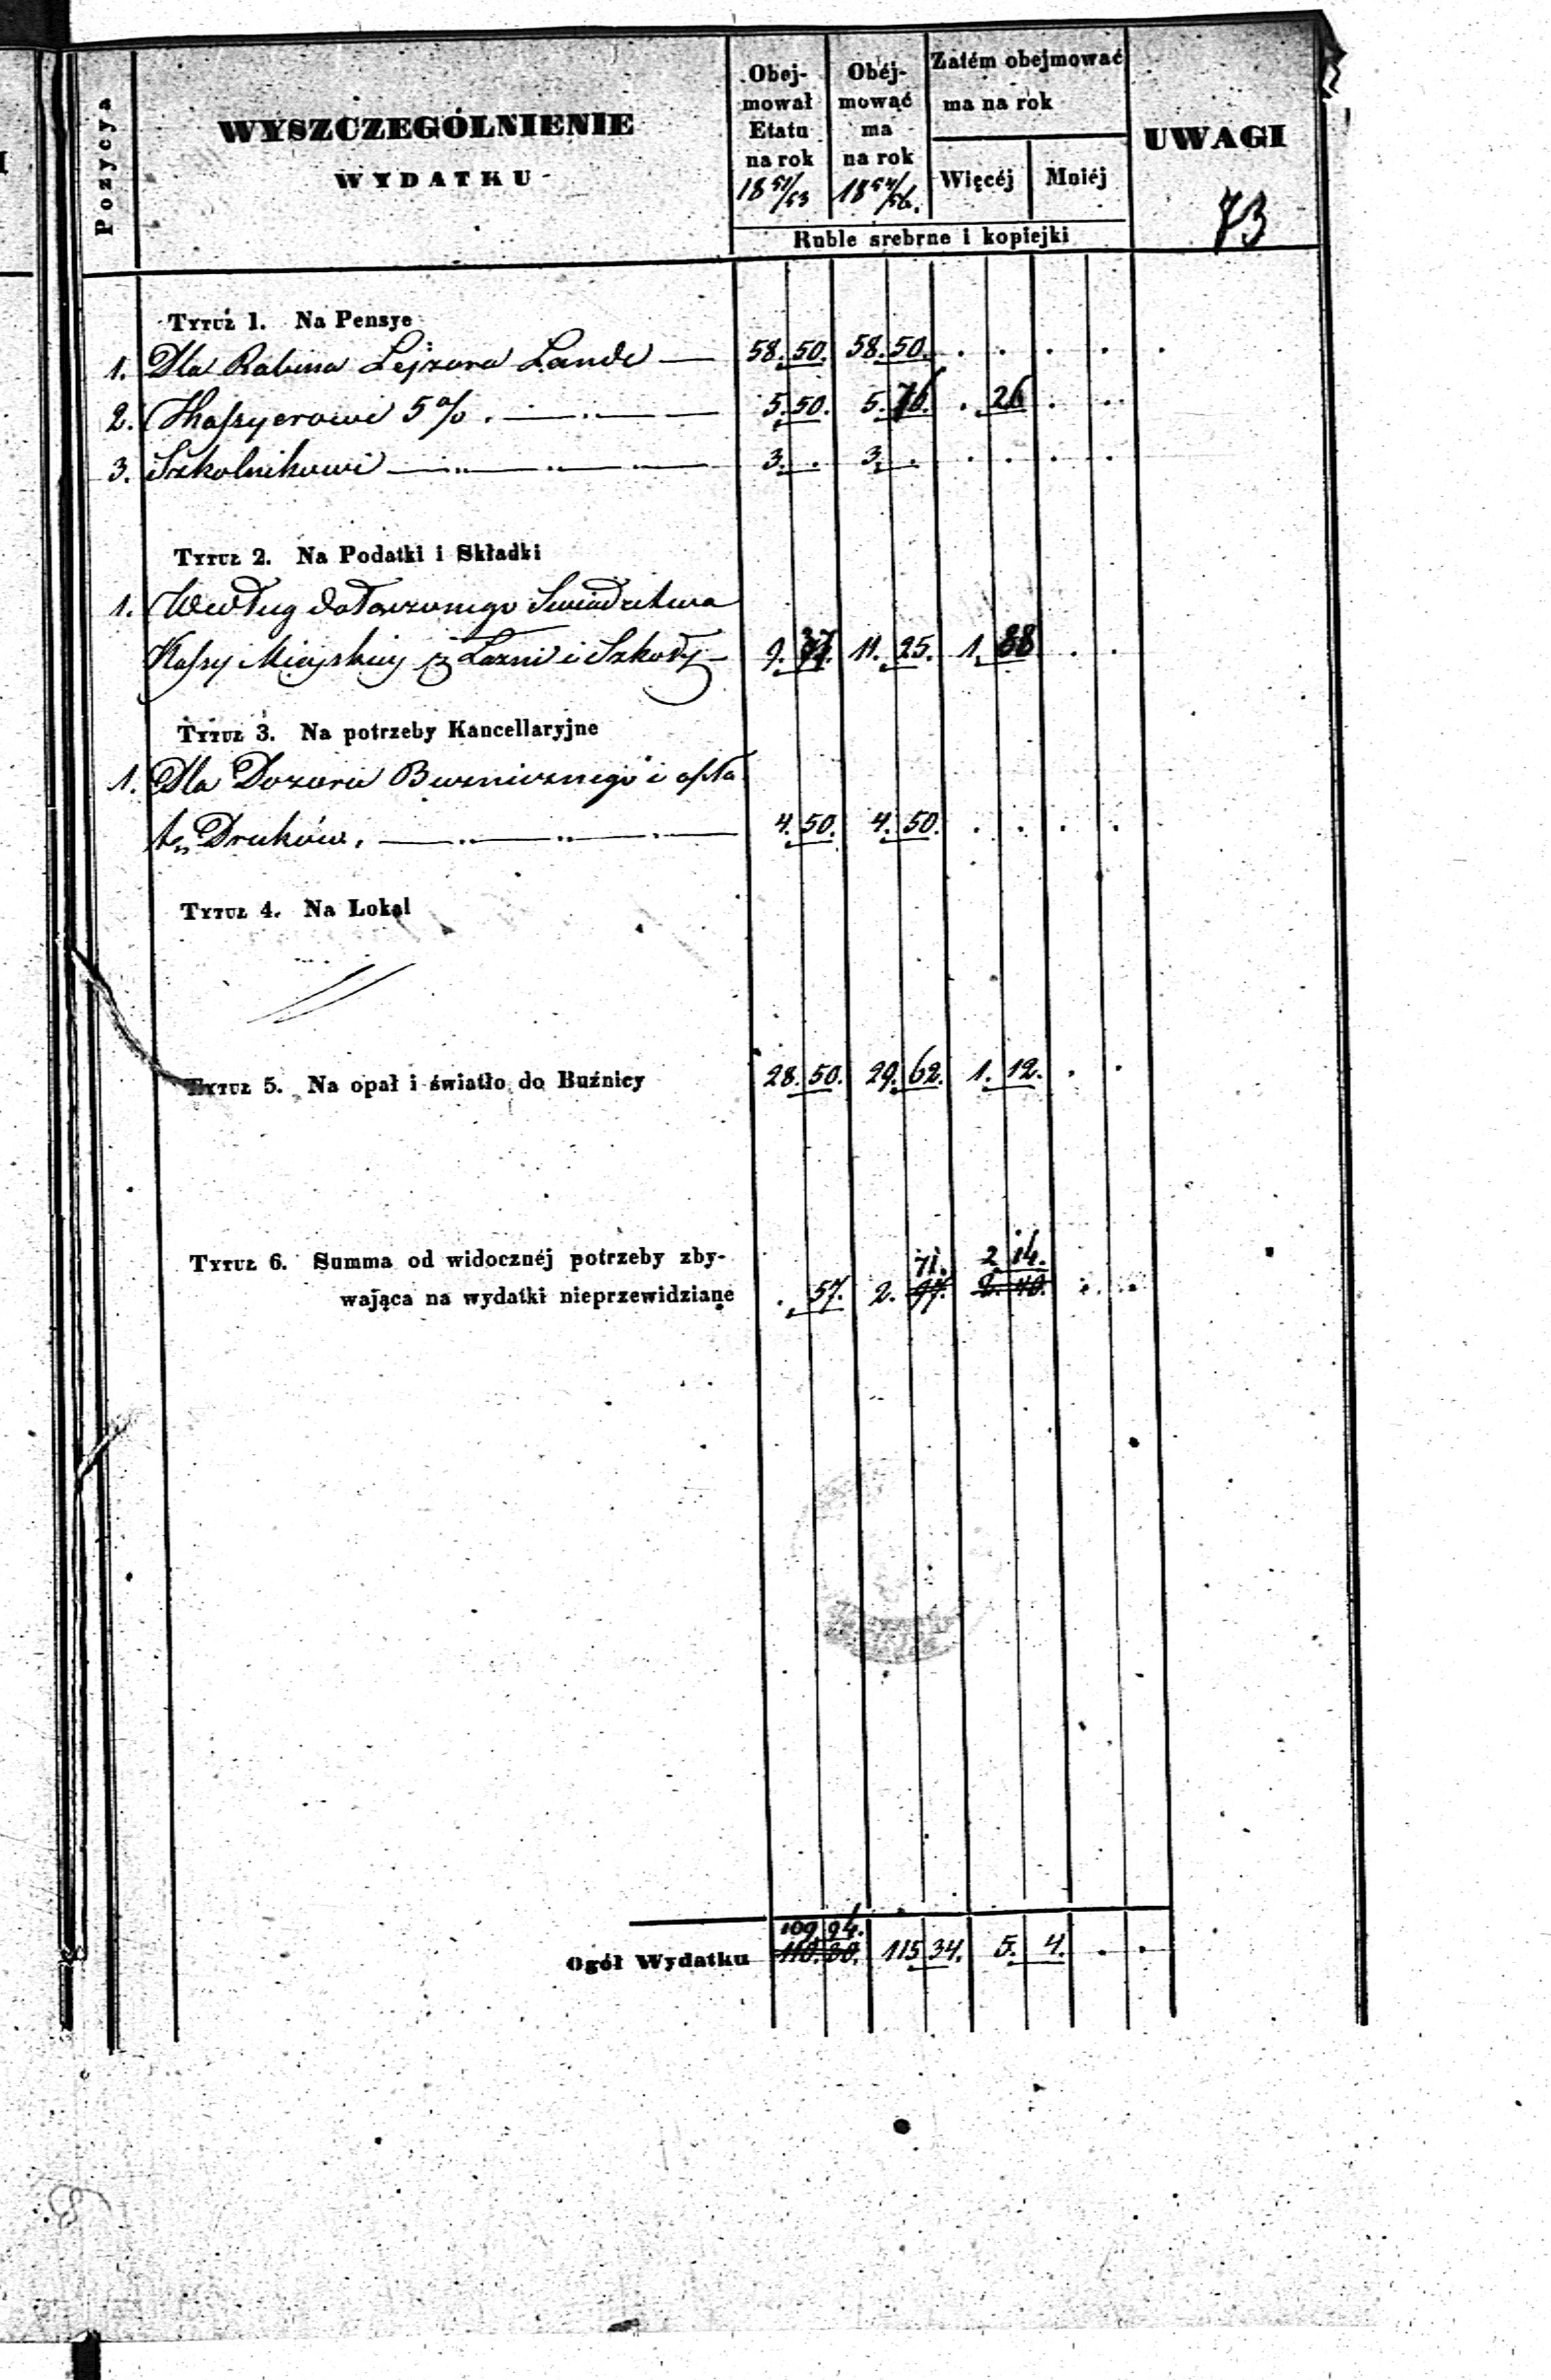 Pozycya
WYSZCZEGÓLNIENIE
WYDATKU
Obej-
mował
Etatu
na rok
18 51/53
Obéj-
mować
ma
na rok
18 54/56.
Zatém obejmować
ma na rok
Więcéj Mniéj
Ruble srebrne i kopiejki
UWAGI
73
Tytuł 1. Na Pensye
1. Dla Rabina Lejzora Lande — 58. 50. 58. 50. . . . .
2. Kassyerowi 5% . 5. 50. 5. 76. . 26 . .
3. Szkolnikowi 3. . 3. . . . . .
Tytuł 2. Na Podatki i Składki
1. Według dołączonego Swiadectwa
Kassy Mieyskiey z Łazni i Szkoły 9. 37. 11. 25. 1. 88 . .
Tytuł 3. Na potrzeby Kancellaryjne
1. Dla Dozoru Buznicznego i opła
tę Druków. 4. 50. 4. 50. . . . .
Tytuł 4. Na Lokal
Tytuł 5. Na opał i światło do Buźnicy 28. 50. 29. 62. 1. 12. . .
71. 2 14.
Tytuł 6. Summa od widocznéj potrzeby zby-
wająca na wydatki nieprzewidziane . 57. 2. 97. 2. 40. . .
109 94.
Ogół Wydatku 110. 80. 115 34. 5. 4. . .